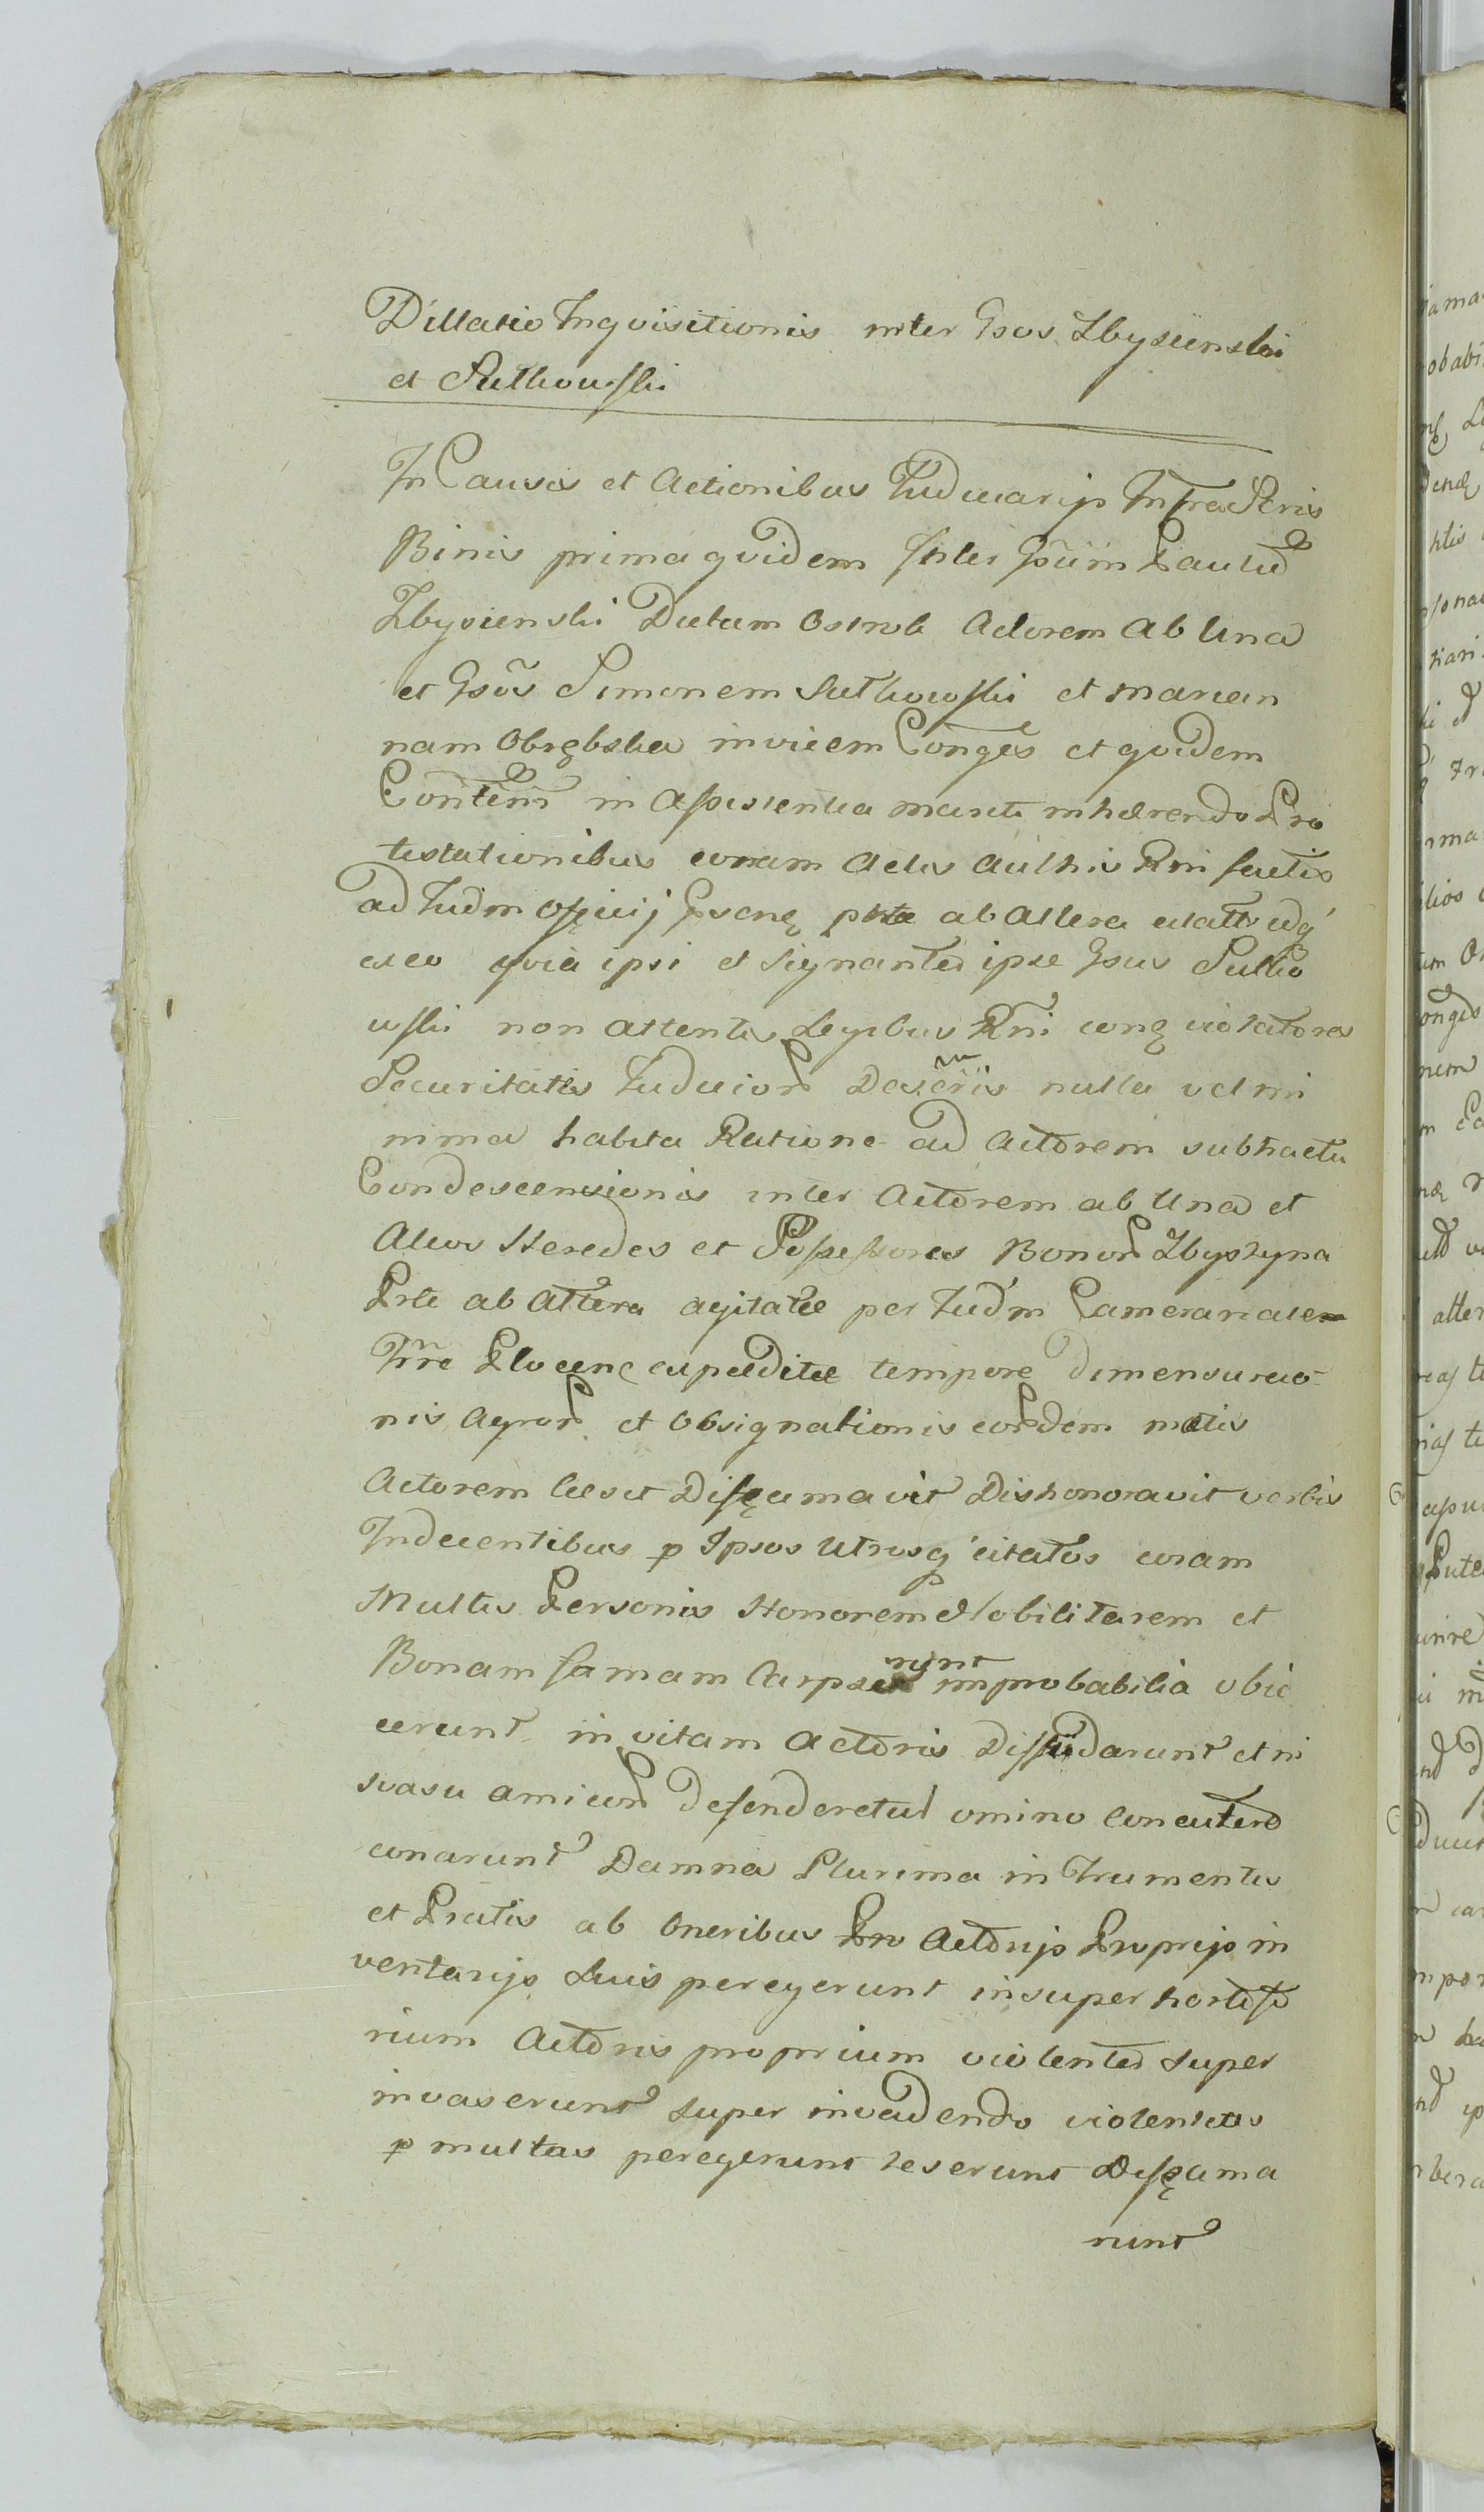 Dillatio Inqvisitionis inter Gsos Zbysienski
et Sutkowski
In Causis et Actionibus Judiciarijs InfraScris
Binis prima qvidem Inter Gsum Paulũ
Zbysienski Dictum Ostrob Actorem Ab Una
et Gsõs Simonem Sutkowski et Marian
nam Obrębska invicem Conges et qvidem
Contem in Assistentia mariti inhærendo Pro
testationibus coram Actis Authis Rni factis
ad Judm Offcij Gscnę pnte ab Altera citatts idq́
ex eo qvia ipsi et signanter ipse Gsus Sutko
wski non attentis Legibus Rni conq violatores
Securitatis Judicior Descris nulla vel mi
nima habita Ratione ad Actorem sub tractu
Condescensionis inter Actorem ab Una et
Alios Heredes et Possessores Bonor Zbyszyna
Prte ab Altera agitatæ per Judm Camerariale
Trre Plocenc expeditæ tempore dimensuratio
nis Agror et Obsignationis eordem metis
Actorem læsit Diffamavit Dishonoravit verbis
Indecentibus p Ipsos Utrosq́ citatos coram
Multis Personis Honorem Nobilitatem et
Bonam famam Carpserunt improbabilia obie
cerunt in vitam Actoris Diffidarunt et ni
svasu amicor defenderetur omino Concutere
conarunt Damna Plurima in Frumentis
et Pratis ab Oneribus Pro Actorijs Proprijs in
ventarijs Suis peregerunt insuper hortiss
rium Actoris proprium violenter super
invaserunt super invadendo violentias
p multas peregerunt leserunt Diffama
runt